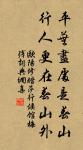 平蕪盡處是春山
行人更在春山外
歐陽修踏莎行候館梅
修詞典調集